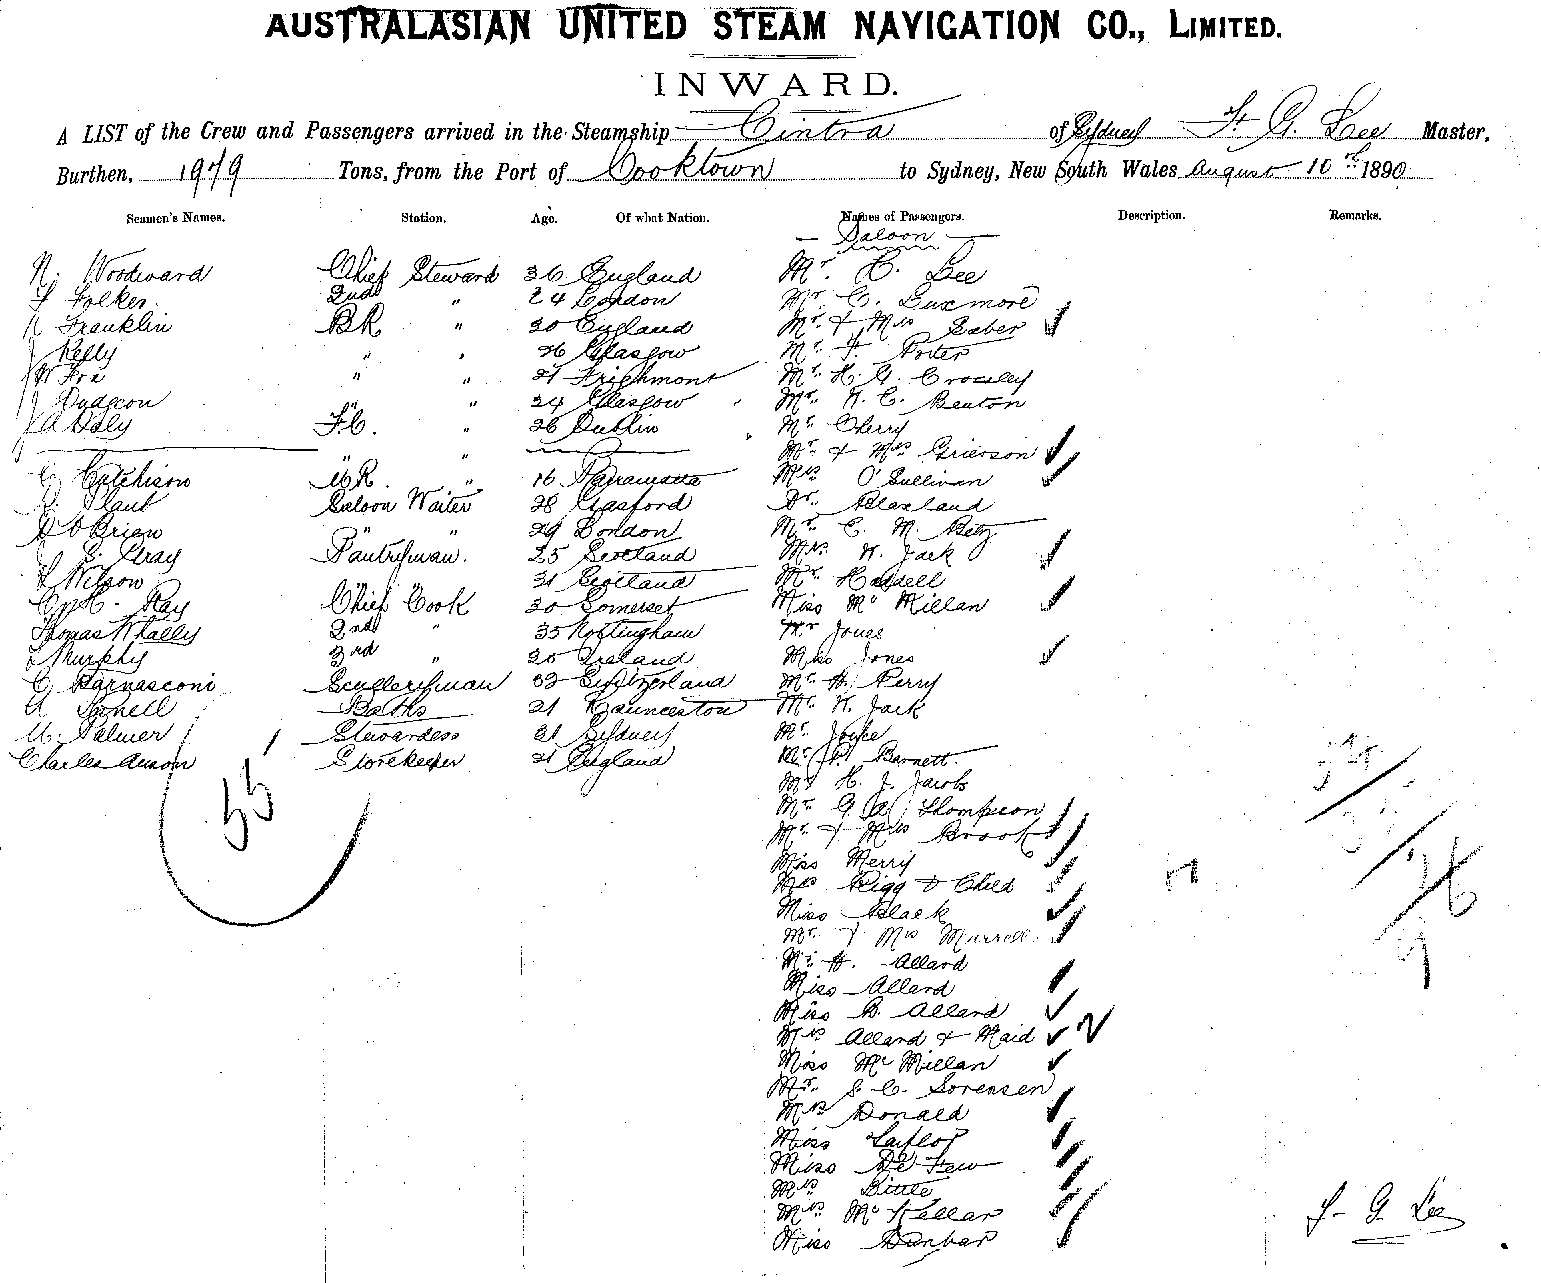 AUSTRALASIAN UNITED STEAM NAVIGATION CO., LIMITED.
INWARD.
A LIST of the Crew and Passengers arrived in the Steamship Cintra of Sydney F. G. Lee Master,
Burthen, 1979 Tons, from the Port of Cooktown to Sydney, New South Wales August 10th 1890
Seamen's Names. Station. Age. Of what Nation. Names of Passengers. Description. Remarks.
Saloon
N. Woodward Chief Steward 36 England Mr. H. Lee
F Folker 2nd " 24 London Mr C. Luxmore
Franklin BR " 20 England Mr. & Mrs Saber
J Kelly " " 26 Glasgow Mr. F. Porter
W Fox " " 21 Mr. H. G. Crossley
J Dudgeon " 24 Glasgow Mr. Benton
J A Daly F.C. " 26 Dublin Mr Cherry
" " Mr & Mrs Grierson
Cutchison UR. " 16 Parramatta Mrs O'Sullivan
Plant Saloon Waiter 28 Dr. Blaxland
O'Brien " " 29 London Mr. C. M. Betz
J G. Gray Pantryman. 25 Scotland Mrs K. Jack
Wilson " " 31 Scotland Mr. Hassell
H. Ray Chief Cook 30 Somerset Miss Mc Millan
Thomas Whally 2nd " 35 Nottingham Mr Jones
Murphy 3rd " 20 Ireland Miss Jones
C Barnasconi Sculleryman 32 Switzerland Mr H. Perry
Baths 21 Launceston Mr. K. Jack
Palmer Stewardess 31 Sydney Mr. Joyce
Charles Storekeeper 21 England Mr. P. Barnett
Mr H. J. Jacobs
Mr. G A Thompson
Mr. & Mrs Brook
Miss Merry
Mrs Rigg & Child
Miss Black
Mr. & Mrs Murrell
Mr. H. Allard
Miss Allard
Miss B. Allard
Mrs Allard & Maid 2
Miss Mc Millan
Mr. S. C. Sorensen
Mrs Donald
Miss Taylor
Miss De Few
Mrs Little
Mrs. McKellar
Miss Dunbar
55
F. G. Lee